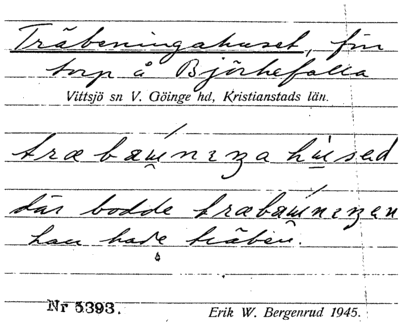 Träbeningahuset, f.n
torp å Björkefalla
Vittsjö sn V. Göinge hd, Kristianstads län.
hused
där bodde
han hade träben.
Nr 5393.
Erik W. Bergenrud 1945.